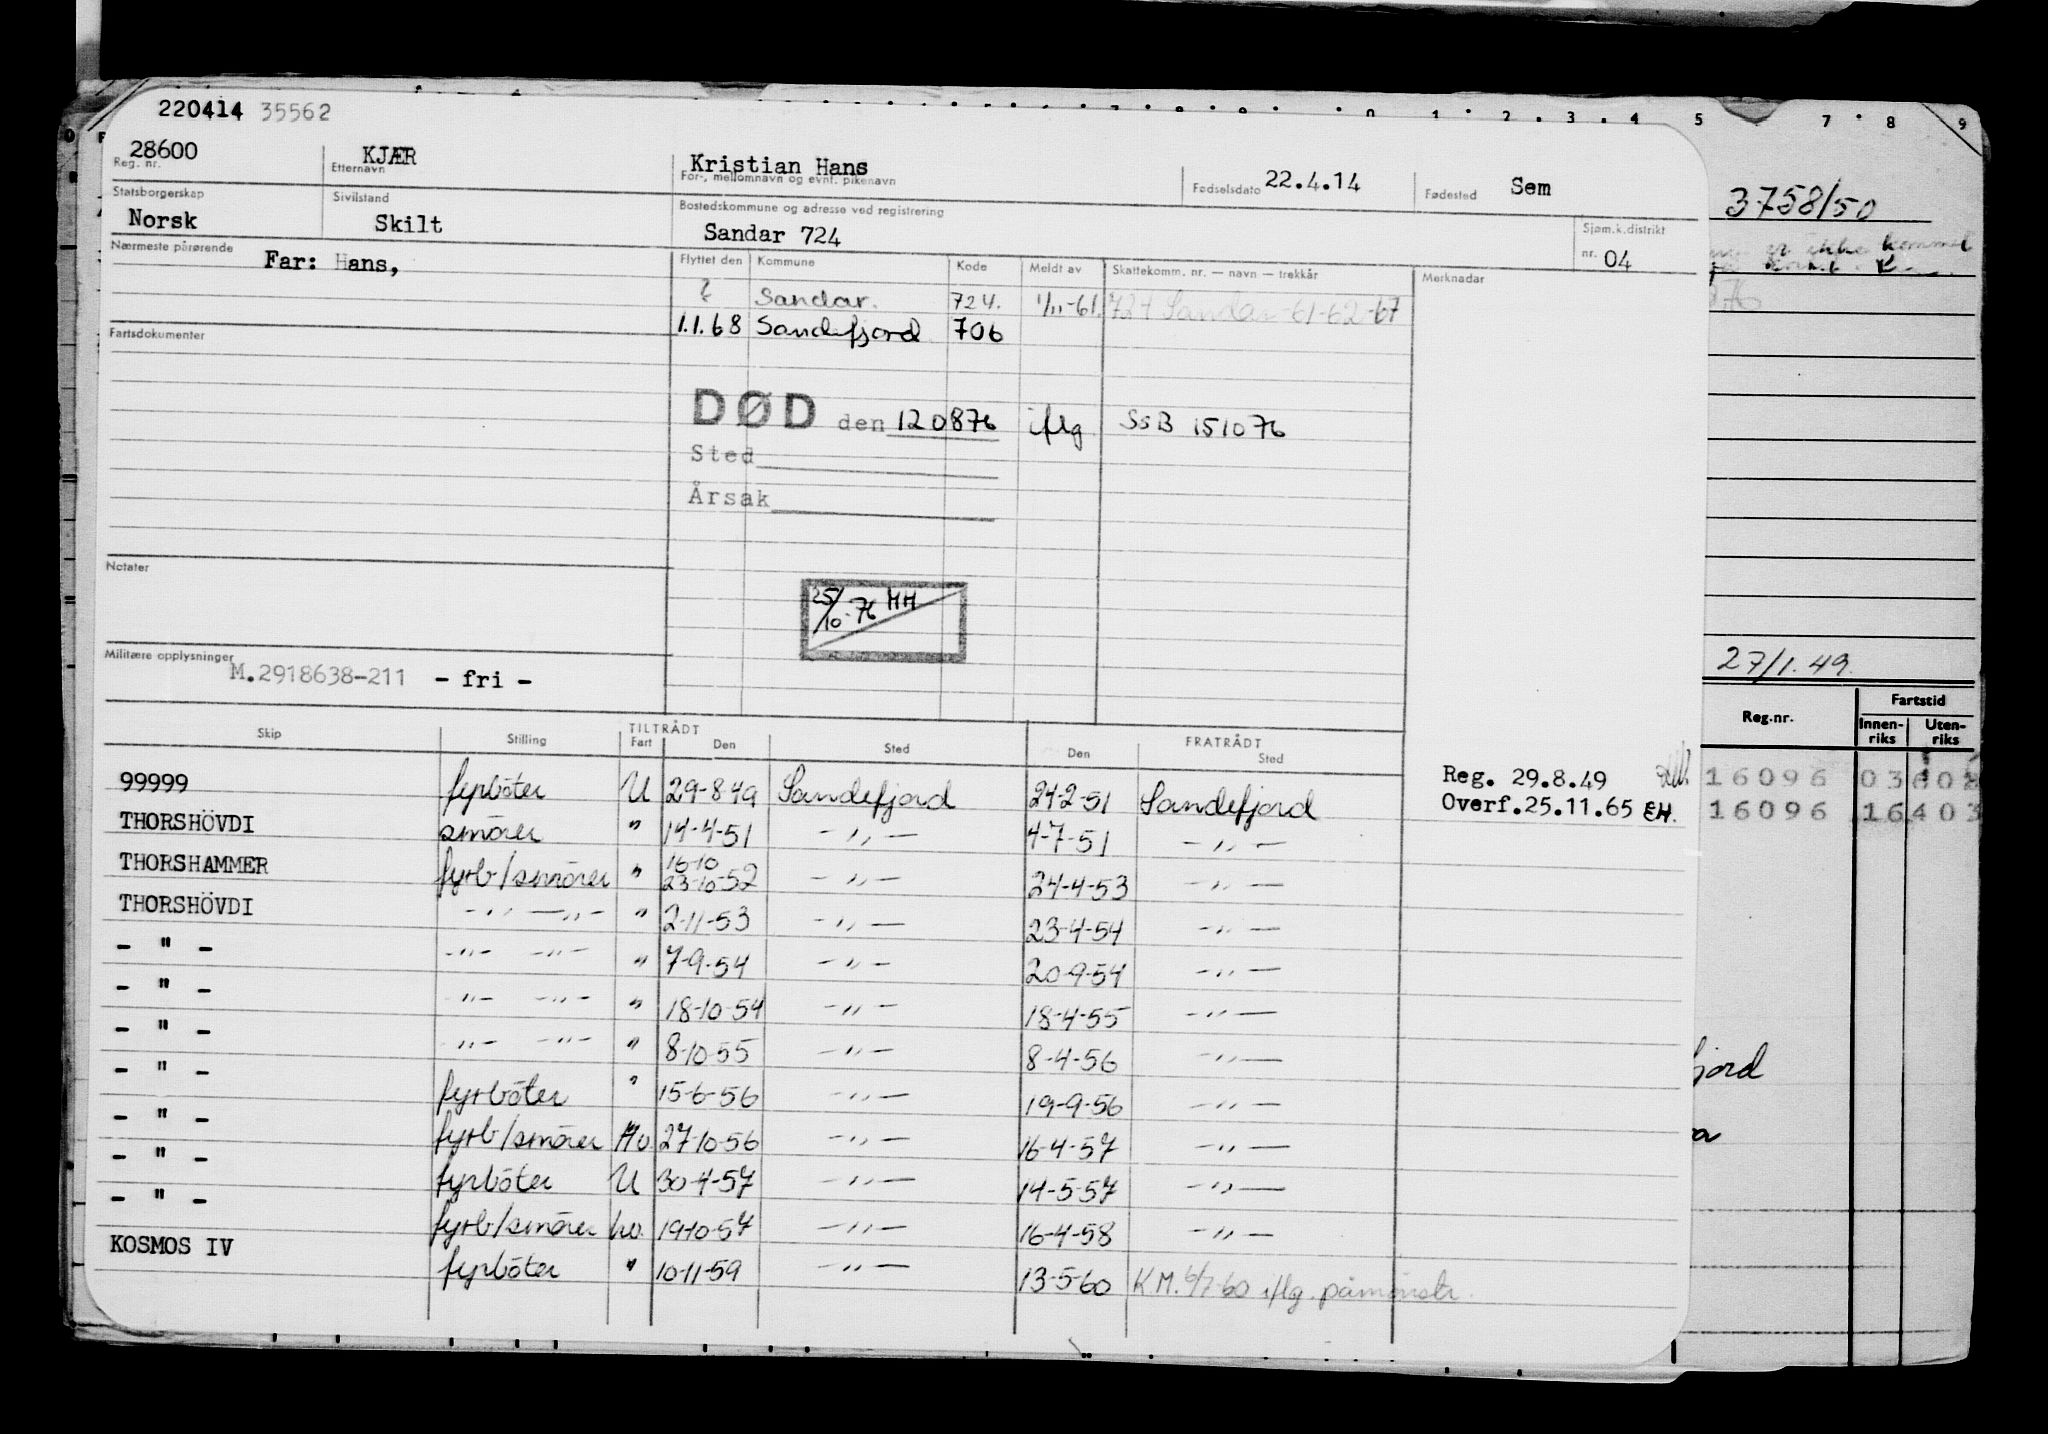 220414 35562
28600 KJÆR Kristian Hans 22.4.14 Sem
Reg. nr. Etternavn For-, mellomnavn og evnt. pikenavn Fødselsdato Fødested
Statsborgerskap Sivilstand Bostedskommune og adresse ved registrering Sjøm.k.distrikt
Norsk Skilt Sandar 724 nr. 04
Nærmeste pårørende Far: Hans,
Flyttet den Kommune Kode Meldt av Skattekomm. nr. — navn — trekkår Merknadar
? Sandar. 724. 1/11-61. 724 Sandar -61-62-67
1.1.68 Sandefjord 706
Fartsdokumenter
DØD den 120876 iflg SSB 151076
Sted
Årsak
Notater
25/10-76 HH
Militære opplysninger
M.2918638-211 - fri -
TILTRÅDT FRATRÅDT
Skip Stilling Fart Den Sted Den Sted
99999 fyrböter U 29-8-49 Sandefjord 24-2-51 Sandefjord
THORSHÖVDI smörer " 14-4-51 -"- 4-7-51 -"-
THORSHAMMER fyrb/smörer " 16-10 23-10-52 -"- 24-4-53 -"-
THORSHÖVDI -"- -"- " 2-11-53 -"- 23-4-54 -"-
- " - -"- -"- " 7-9-54 -"- 20-9-54 -"-
- " - -"- -"- " 18-10-54 -"- 18-4-55 -"-
- " - -"- -"- " 8-10-55 -"- 8-4-56 -"-
- " - fyrböter " 15-6-56 -"- 19-9-56 -"-
- " - fyrb/smörer Hv 27-10-56 -"- 16-4-57 -"-
- " - fyrböter U 30-4-57 -"- 14-5-57 -"-
- " - fyrb/smörer hv. 19-10-57 -"- 16-4-58 -"-
KOSMOS IV fyrböter " 10-11-59 -"- 13-5-60 KM. 6/7-60 iflg. påmönstr.
Reg. 29.8.49
Overf.25.11.65 EH.
5 7 8 9
3758/50
er ikke kommet
27/1.49.
Reg.nr. Fartstid
Innen-riks Uten-riks
16096
16096 16403
fjord